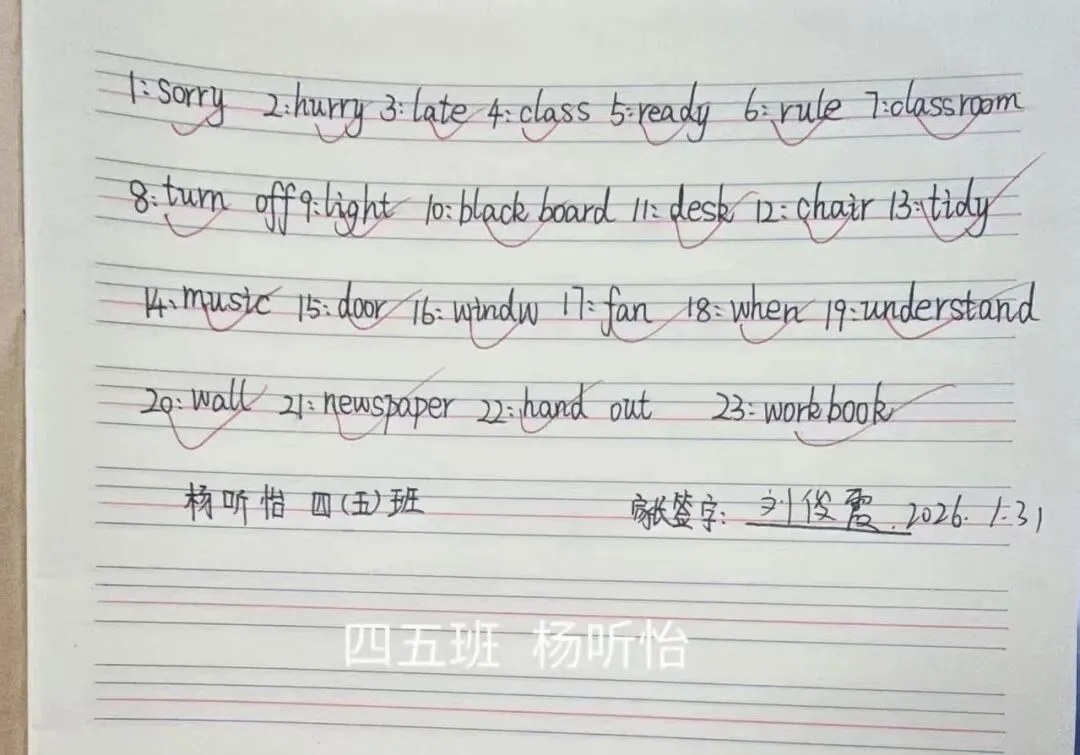 1:sorry 2:hurry 3:late 4:class 5:ready 6:rule 7:classroom
8:turn off 9:light 10:blackboard 11:desk 12:chair 13:tidy
14:music 15:door 16:windw 17:fan 18:when 19:understand
20:wall 21:newspaper 22:hand out 23:workbook
杨听怡 四(五)班 家长签字:刘俊霞.2026.1.31
四五班 杨听怡